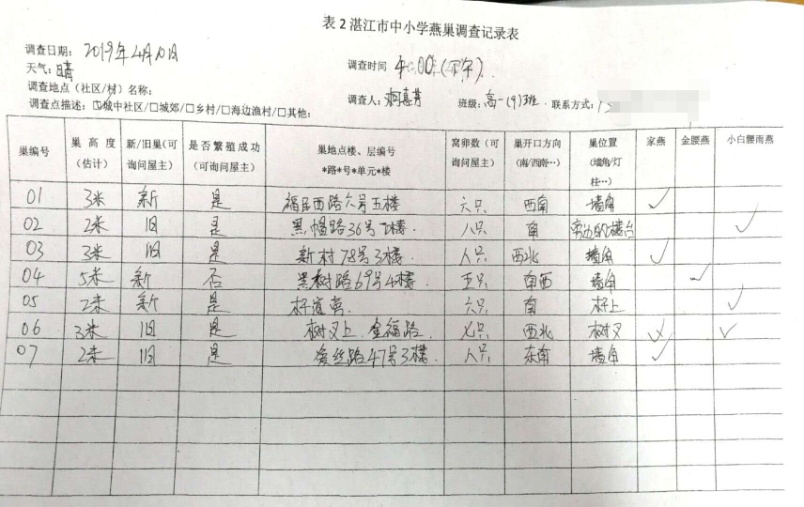 表 2 湛江市中小学燕巢调查记录表
调查日期: 2019年4月10日
天气: 晴 调查时间 4:00(下午).
调查地点(社区/村)名称:
调查点描述: ☑城中社区/□城郊/□乡村/□海边渔村/□其他: 调查人: 班级: 高一(9)班. 联系方式:
巢编号 巢高度(估计) 新/旧巢(可询问屋主) 是否繁殖成功(可询问屋主) 巢地点楼、层编号*路*号*单元*楼 窝卵数(可询问屋主) 巢开口方向(南/西南…) 巢位置(墙角/灯柱…) 家燕 金腰燕 小白腰雨燕
01 3米 新 是 福民西路六号五楼 六只 西南 墙角 ✓
02 2米 旧 是 36号 八只 南 ✓
03 3米 旧 是 新村78号3楼 八只 西北 墙角 ✓
04 5米 新 否 69号4楼 五只 南西 墙角 ✓
05 2米 新 是 六只 南 ✓
06 3米 旧 是 树叉上. 金福路. 七只 西北 树叉 ✓
07 2米 旧 是 47号3楼. 八只 东南 墙角 ✓